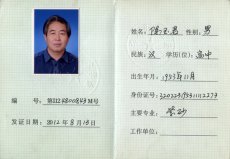 编 号： 第3124800843M号
发证日期： 2012年8月13日
姓名： 性别： 男
民族： 汉 学历(位)： 高中
出生年月： 1953年11月
身份证号：
主要专业： 紫砂
工作单位：